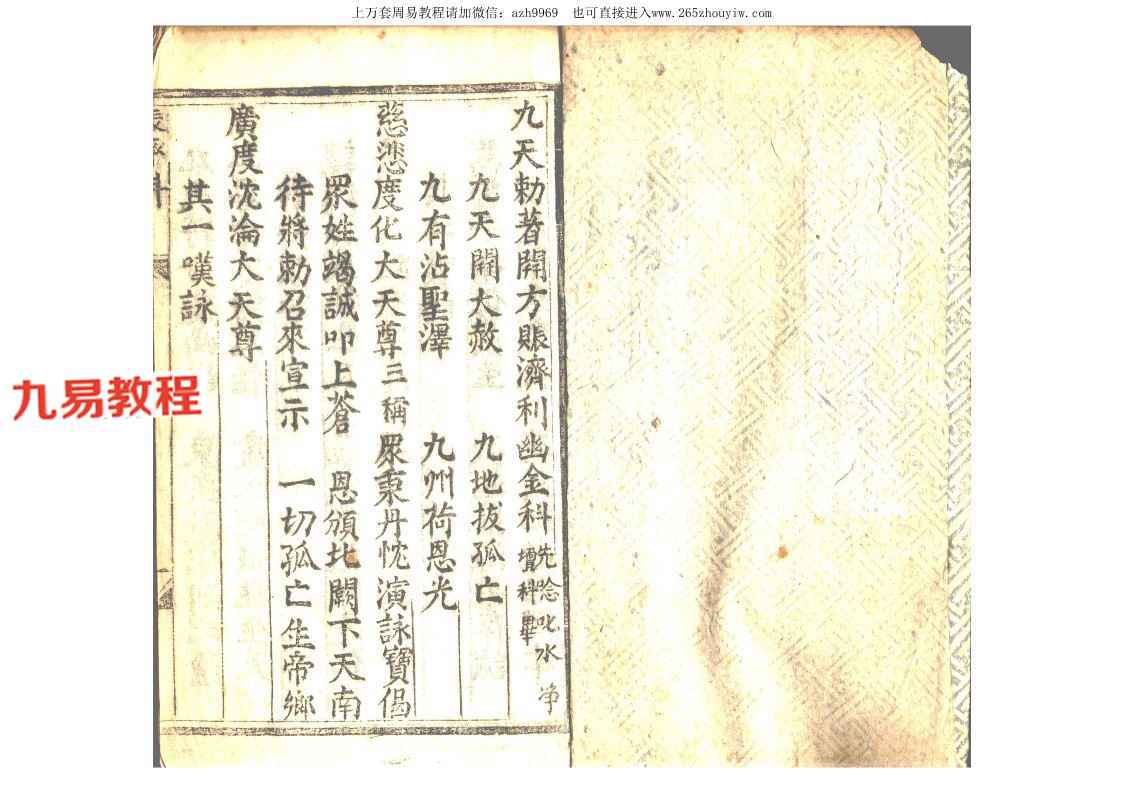 上万套周易教程请加微信：azh9969 也可直接进入www.265zhouyiw.com
九天勅著開方賑濟利幽金科 先念叱水净
壇科畢
九天開大赦 九地拔孤亡
九有沾聖澤 九州荷恩光
慈悲度化大天尊三稱 眾秉丹忱演詠寶偈
眾姓竭誠叩上蒼 恩頒北闕下天南
待將勅召來宣示 一切孤亡生帝鄉
廣度沈淪大天尊
其一嘆詠
九易教程